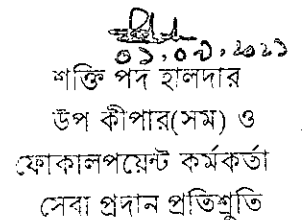 ০১.০৭.২০২১
শক্তি পদ হালদার
উপ কীপার(সম) ও
ফোকালপয়েন্ট কর্মকর্তা
সেবা প্রদান প্রতিশ্রুতি